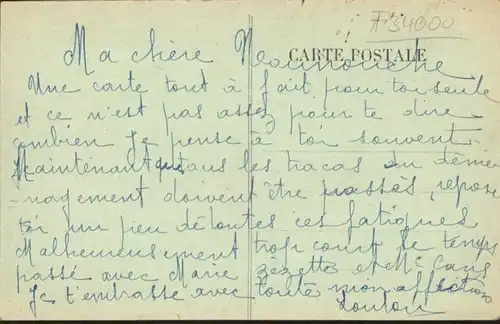 F34000
CARTE POSTALE
Ma chère Nounouche
Une carte tout à fait pour toi seule
et ce n'est pas assez pour te dire
combien je pense à toi souvent.
Maintenant que tous les tracas du démé-
-nagement doivent être passés, repose
toi un peu de toutes ces fatigues
Malheureusement trop court le temps
passé avec Marie Zézette et Mc
Je t'embrasse avec toute mon affection
Loulou